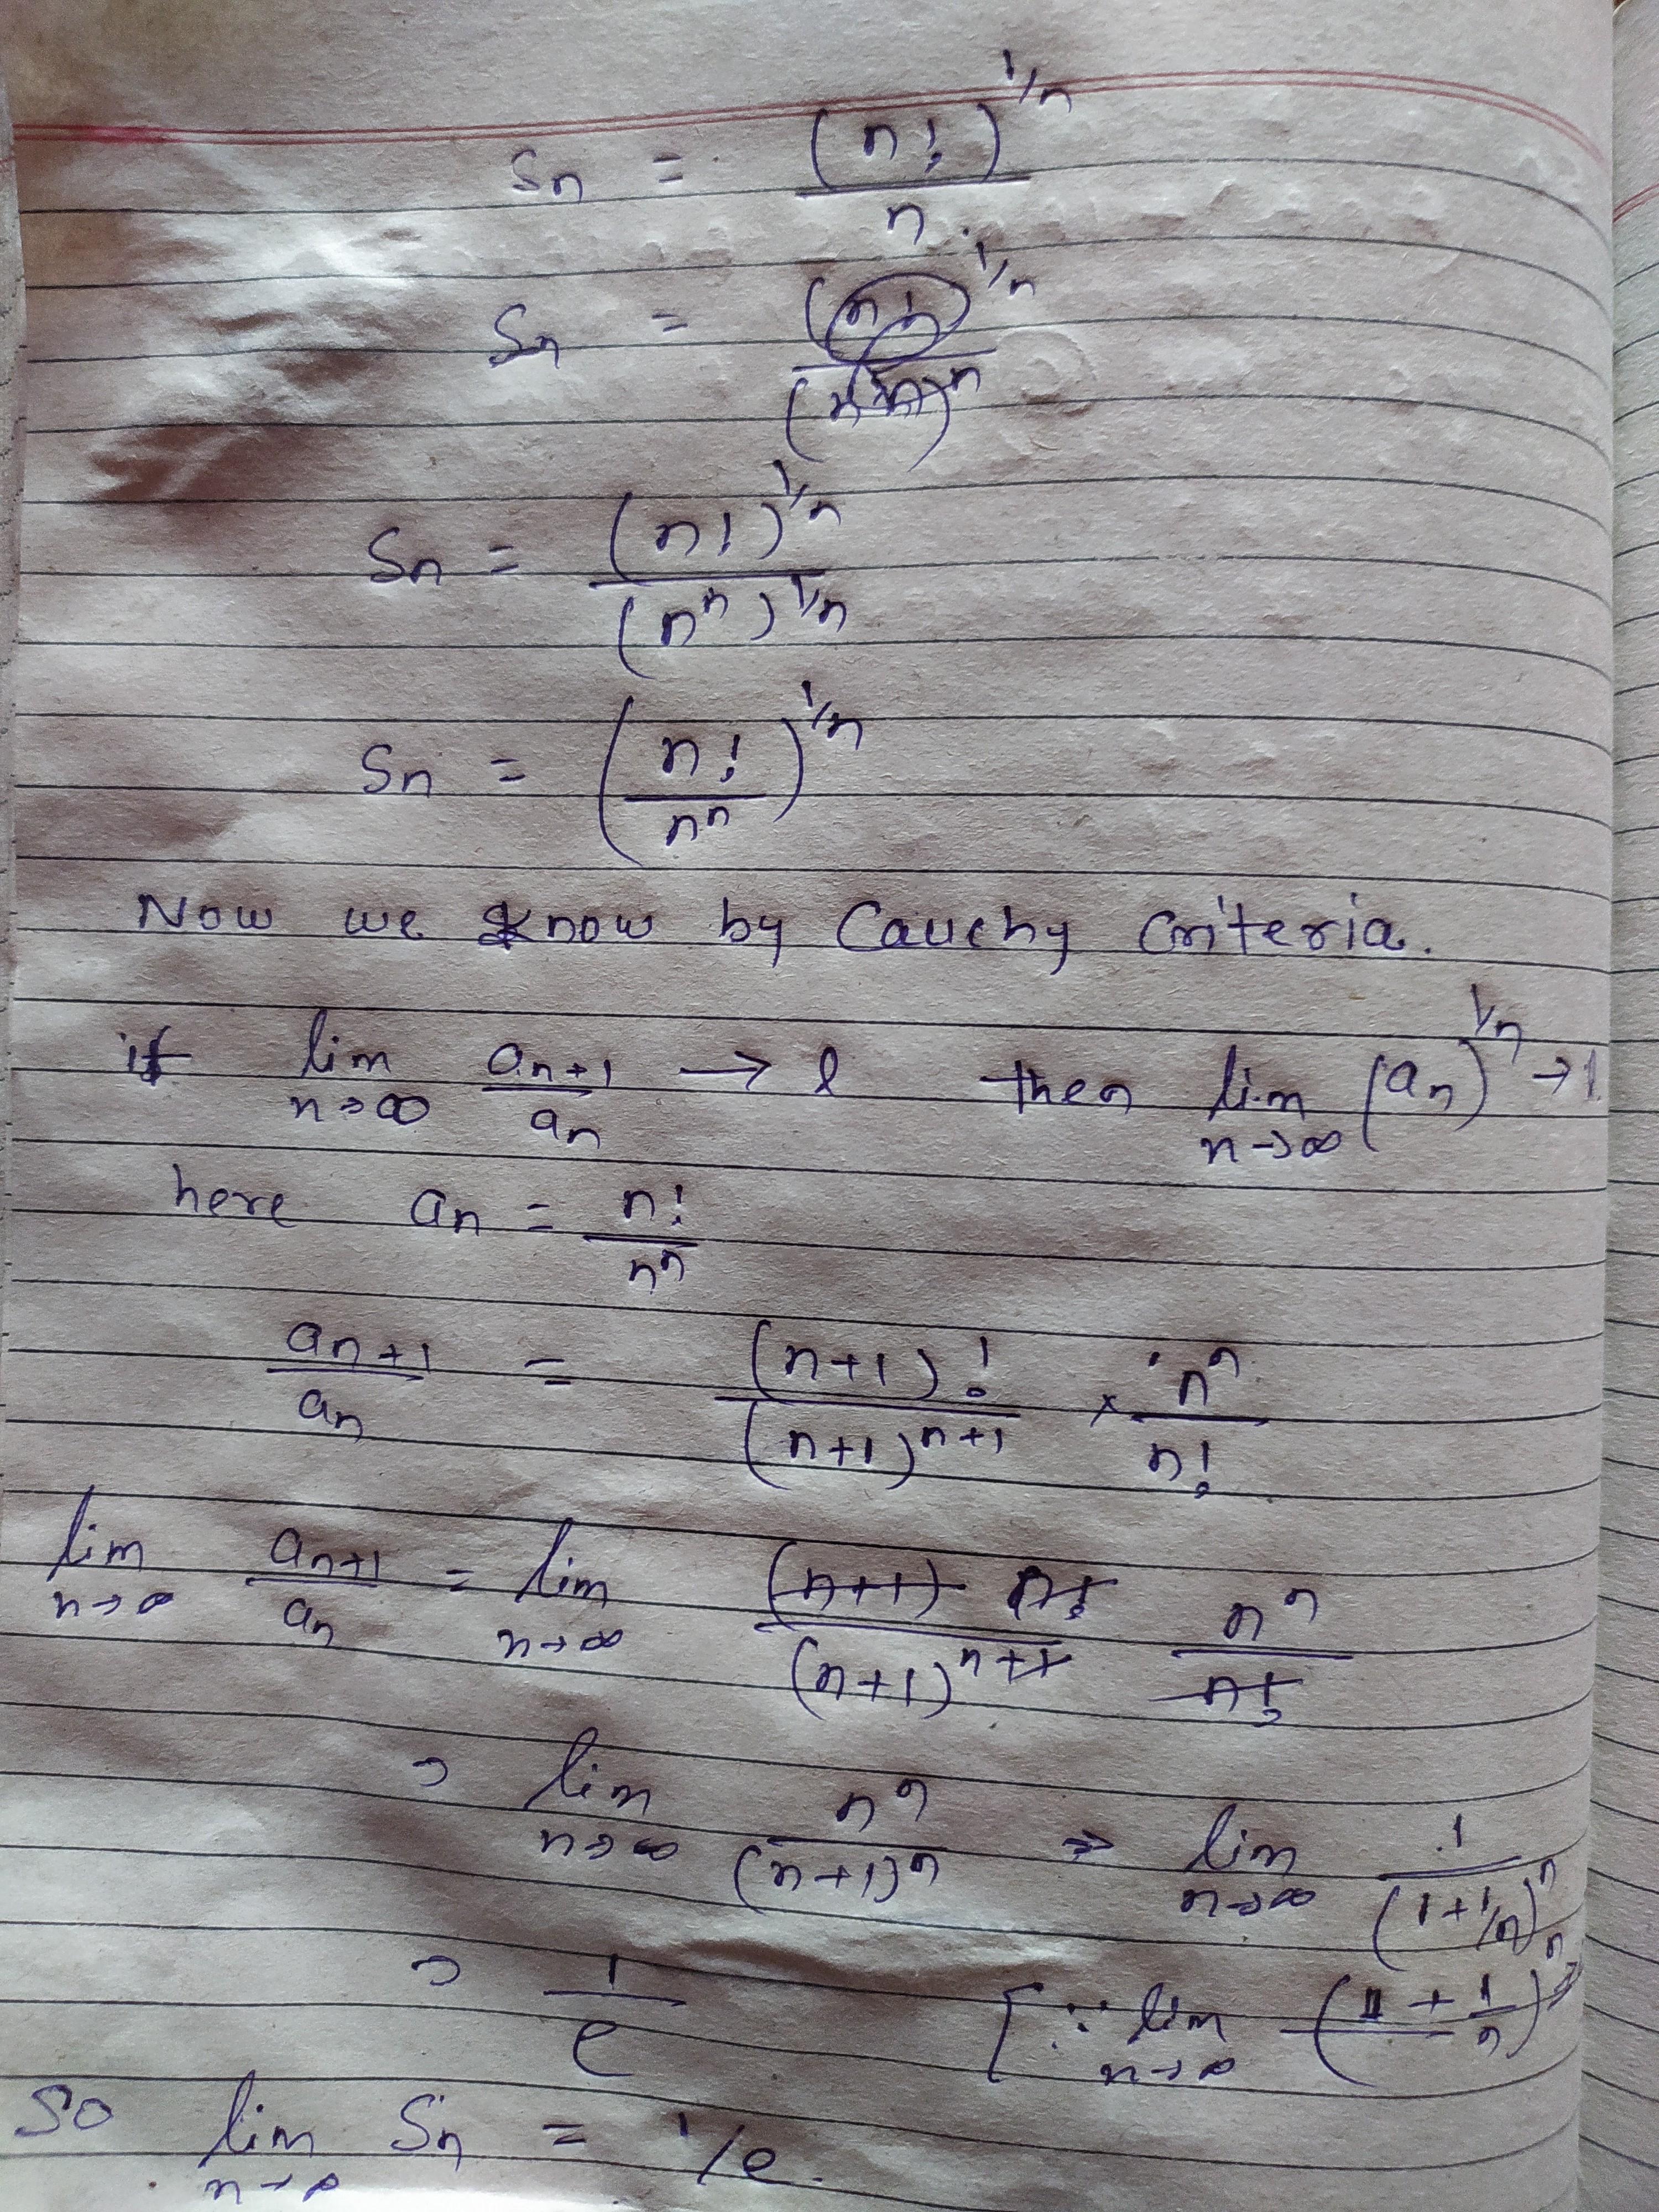 Sn = (n!)^1/n / n.
Sn = (n!)^1/n / ( )^n
Sn = (n!)^1/n / (n^n)^1/n
Sn = (n! / n^n)^1/n
Now we know by Cauchy Criteria.
if lim n→∞ an+1 / an → l then lim n→∞ (an)^1/n → l
here an = n! / n^n
an+1 / an = (n+1)! / (n+1)^n+1 × n^n / n!
lim n→∞ an+1 / an = lim n→∞ (n+1) n! / (n+1)^n+1 n^n / n!
= lim n→∞ n^n / (n+1)^n ⇒ lim n→∞ 1 / (1+1/n)^n
= 1 / e [∵ lim n→∞ (1 + 1/n)^n
So lim n→∞ Sn = 1/e.